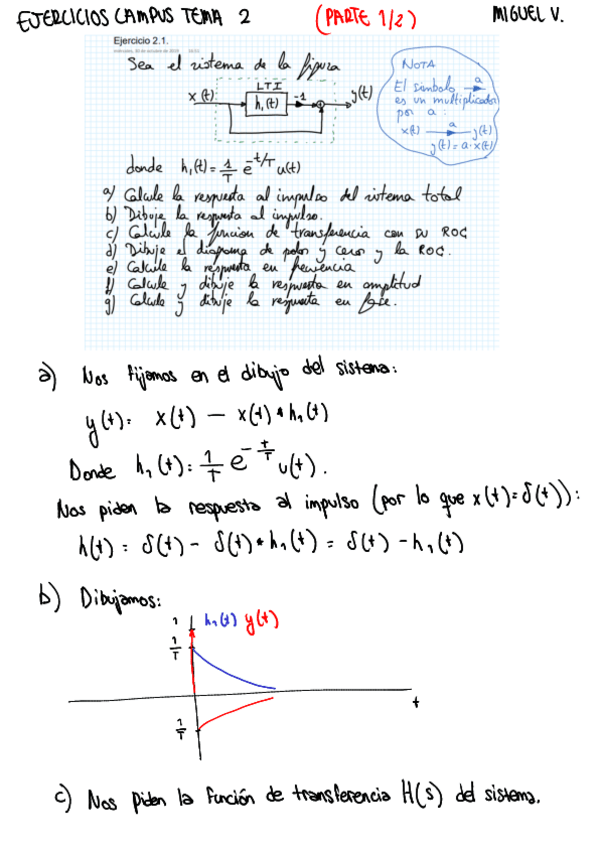 EJERCICIOS CAMPUS TEMA 2 (PARTE 1/2) MIGUEL V.
Ejercicio 2.1.
Sea el sistema de la figura
NOTA
El símbolo a
es un multiplicador
por a:
x(t) a y(t)
y(t) = a·x(t)
LTI
x(t) h₁(t) -1 + y(t)
donde h₁(t) = 1/T e^(-t/T) u(t)
a) Calcule la respuesta al impulso del sistema total
b) Dibuje la respuesta al impulso.
c) Calcule la función de transferencia con su ROC
d) Dibuje el diagrama de polos y ceros y la ROC.
e) Calcule la respuesta en frecuencia
f) Calcule y dibuje la respuesta en amplitud
g) Calcule y dibuje la respuesta en fase.
a) Nos fijamos en el dibujo del sistema:
y(t) = x(t) - x(t) * h₁(t)
Donde h₁(t) = 1/T e^(-t/T) u(t).
Nos piden la respuesta al impulso (por lo que x(t) = δ(t)):
h(t) = δ(t) - δ(t) * h₁(t) = δ(t) - h₁(t)
b) Dibujamos:
1 h₁(t) y(t)
1/T
t
1/T
c) Nos piden la función de transferencia H(s) del sistema.